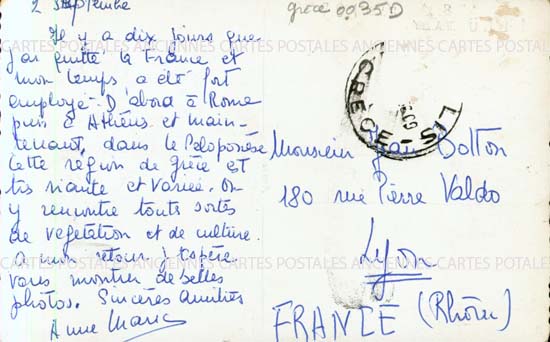 2 septembre
Il y a dix jours que
j'ai quitté la France et
mon temps a été fort
employé - D'abord à Rome
puis à Athènes et main-
tenant, dans le Péloponèse
Cette région de Grèce est
très riante et variée. On
y rencontre toutes sortes
de végétation et de culture.
A mon retour j'espère
vous montrer de belles
photos. Sincères amitiés
Anne Marie
grèce 0035D
GRÈCE - LIS
Monsieur Jean Dolfon
180 rue Pierre Valdo
Lyon
FRANCE (Rhône)
CARTES POSTALES ANCIENNES CARTES POSTALES ANCIENNES CARTES POSTALES